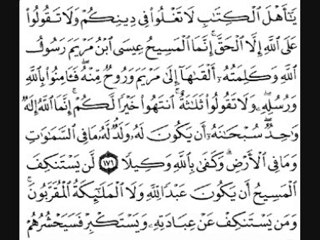 يَٰٓأَهْلَ ٱلْكِتَٰبِ لَا تَغْلُوا۟ فِى دِينِكُمْ وَلَا تَقُولُوا۟
عَلَى ٱللَّهِ إِلَّا ٱلْحَقَّ ۚ إِنَّمَا ٱلْمَسِيحُ عِيسَى ٱبْنُ مَرْيَمَ رَسُولُ
ٱللَّهِ وَكَلِمَتُهُۥٓ أَلْقَىٰهَآ إِلَىٰ مَرْيَمَ وَرُوحٌ مِّنْهُ ۖ فَـَٔامِنُوا۟ بِٱللَّهِ
وَرُسُلِهِۦ ۖ وَلَا تَقُولُوا۟ ثَلَٰثَةٌ ۚ ٱنتَهُوا۟ خَيْرًا لَّكُمْ ۚ إِنَّمَا ٱللَّهُ إِلَٰهٌ
وَٰحِدٌ ۖ سُبْحَٰنَهُۥٓ أَن يَكُونَ لَهُۥ وَلَدٌ ۘ لَّهُۥ مَا فِى ٱلسَّمَٰوَٰتِ
وَمَا فِى ٱلْأَرْضِ ۗ وَكَفَىٰ بِٱللَّهِ وَكِيلًا ١٧١ لَّن يَسْتَنكِفَ
ٱلْمَسِيحُ أَن يَكُونَ عَبْدًا لِّلَّهِ وَلَا ٱلْمَلَٰٓئِكَةُ ٱلْمُقَرَّبُونَ ۚ
وَمَن يَسْتَنكِفْ عَنْ عِبَادَتِهِۦ وَيَسْتَكْبِرْ فَسَيَحْشُرُهُمْ